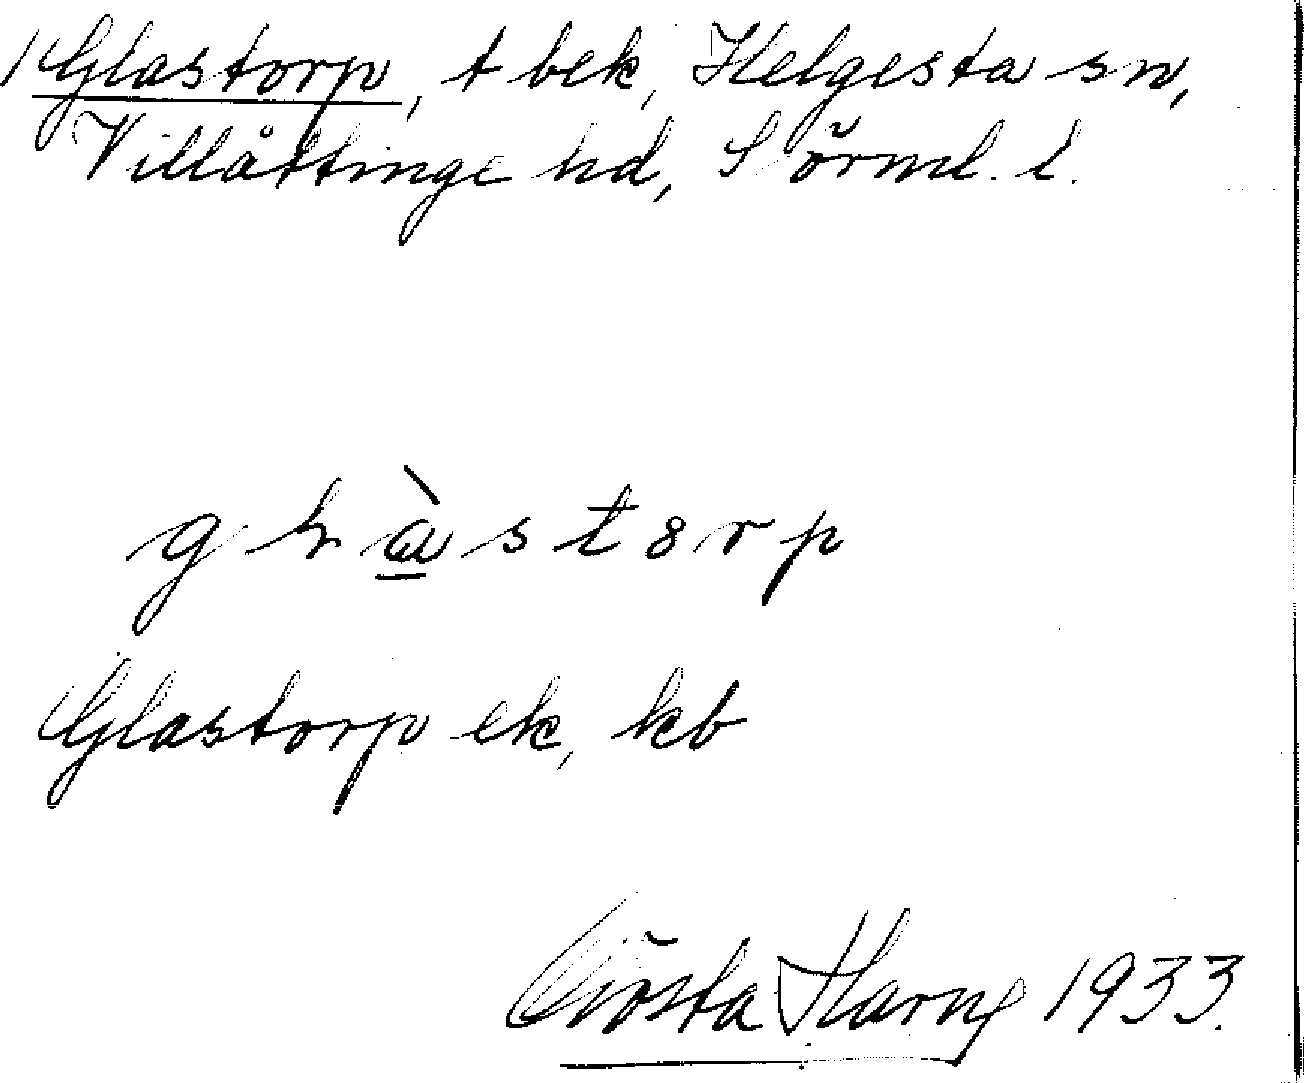 1 Glastorp, t bek, Helgesta sn,
Villåttinge hd, Sörml. l.
g ł à s t 8 r p
Glastorp ek, kb
Gösta Harng 1933.